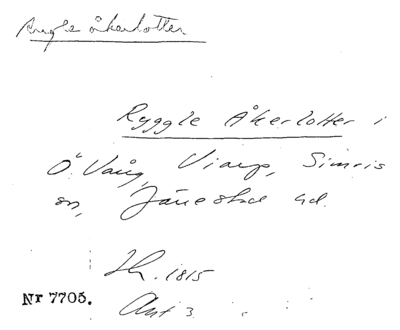 Ryggle åkerlotter
Ryggle Åkerlotter i
Ö. Vång, Viarp, Simris
sn, Järrestad hd.
Sk. 1815
Nr 7705.
Akt 3